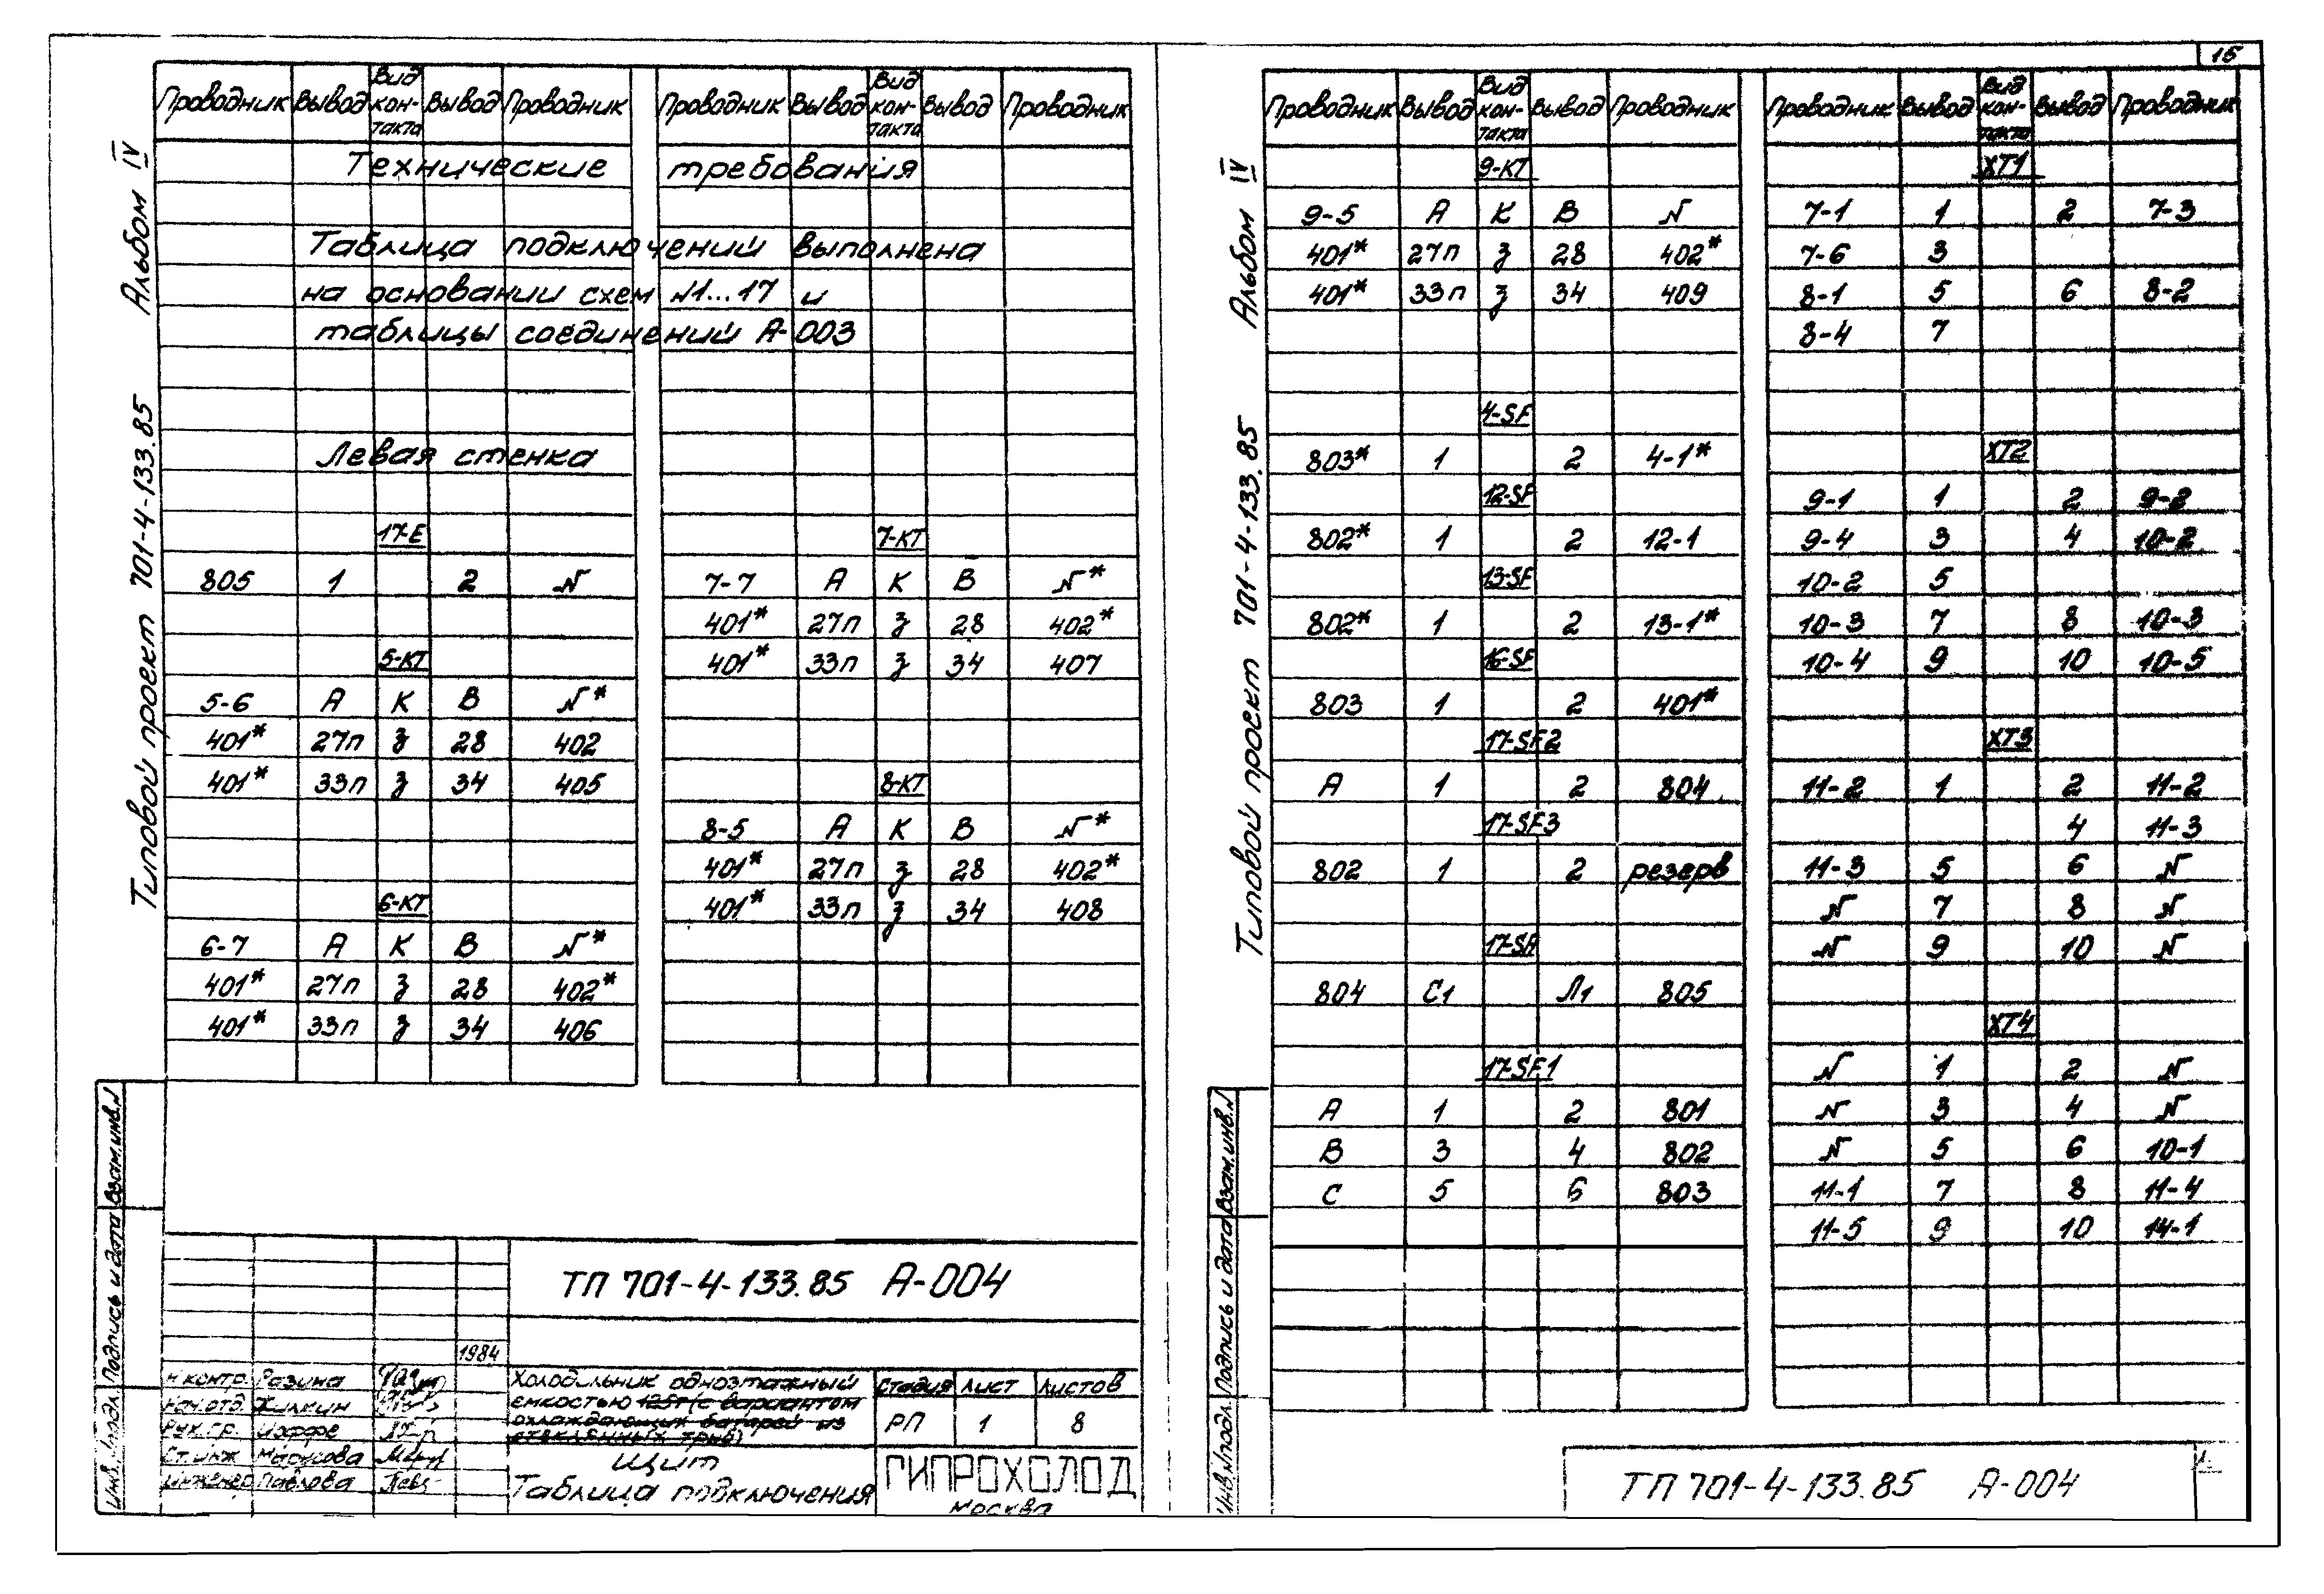 15
Альбом IV
Типовой проект 701-4-133.85
Проводник Вывод Вид контакта Вывод Проводник Проводник Вывод Вид контакта Вывод Проводник
Технические требования
Таблица подключений выполнена
на основании схем №1...17 и
таблицы соединений А-003
Левая стенка
17-Е
805 1 2 N
5-КТ
5-6 А К В N*
401* 27п з 28 402
401* 33п з 34 405
6-КТ
6-7 А К В N*
401* 27п з 28 402*
401* 33п з 34 406
7-КТ
7-7 А К В N*
401* 27п з 28 402*
401* 33п з 34 407
8-КТ
8-5 А К В N*
401* 27п з 28 402*
401* 33п з 34 408
Взам.инв.N
Подпись и дата
Инв.N подл.
ТП 701-4-133.85 А-004
1984
Н.контр. Разина
Нач.отд. Жилкин
Рук.гр. Иоффе
Ст.инж. Марусова
Инженер Павлова
Холодильник одноэтажный
емкостью 125т (с вариантом
охлаждающих батарей из
стеклянных труб)
Щит
Таблица подключения
Стадия Лист Листов
РП 1 8
ГИПРОХОЛОД
Москва
Альбом IV
Типовой проект 701-4-133.85
Проводник Вывод Вид контакта Вывод Проводник Проводник Вывод Вид контакта Вывод Проводник
9-КТ
9-5 А К В N
401* 27п з 28 402*
401* 33п з 34 409
4-SF
803* 1 2 4-1*
12-SF
802* 1 2 12-1
13-SF
802* 1 2 13-1*
16-SF
803 1 2 401*
17-SF2
А 1 2 804
17-SF3
802 1 2 резерв
17-SA
804 С1 Л1 805
17-SF1
А 1 2 801
В 3 4 802
С 5 6 803
ХТ1
7-1 1 2 7-3
7-6 3
8-1 5 6 8-2
8-4 7
ХТ2
9-1 1 2 9-2
9-4 3 4 10-2
10-2 5
10-3 7 8 10-3
10-4 9 10 10-5
ХТ3
11-2 1 2 11-2
4 11-3
11-3 5 6 N
N 7 8 N
N 9 10 N
ХТ4
N 1 2 N
N 3 4 N
N 5 6 10-1
11-1 7 8 11-4
11-5 9 10 14-1
Взам.инв.N
Подпись и дата
Инв.N подл.
ТП 701-4-133.85 А-004